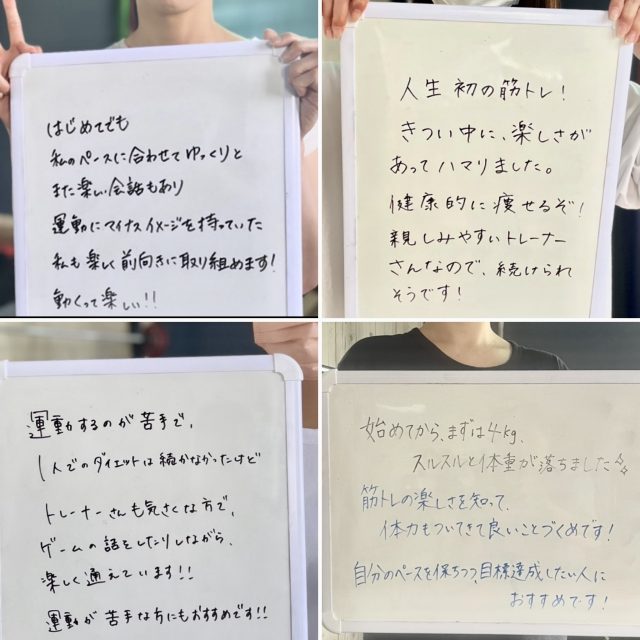 はじめてでも
私のペースに合わせてゆっくりと
また楽しい会話もあり
運動にマイナスイメージを持っていた
私も楽しく前向きに取り組めます!
動くって楽しい!!
人生初の筋トレ!
きつい中に、楽しさが
あってハマりました。
健康的に痩せるぞ!
親しみやすいトレーナー
さんなので、続けられ
そうです!
運動するのが苦手で、
1人でのダイエットは続かなかったけど
トレーナーさんも気さくな方で、
ゲームの話をしたりしながら、
楽しく通えています!!
運動が苦手な方にもおすすめです!!
始めてから、まずは4kg、
スルスルと体重が落ちました☆
筋トレの楽しさを知って、
体力もついてきて良いことづくめです!
自分のペースを保ちつつ、目標達成したい人に
おすすめです!